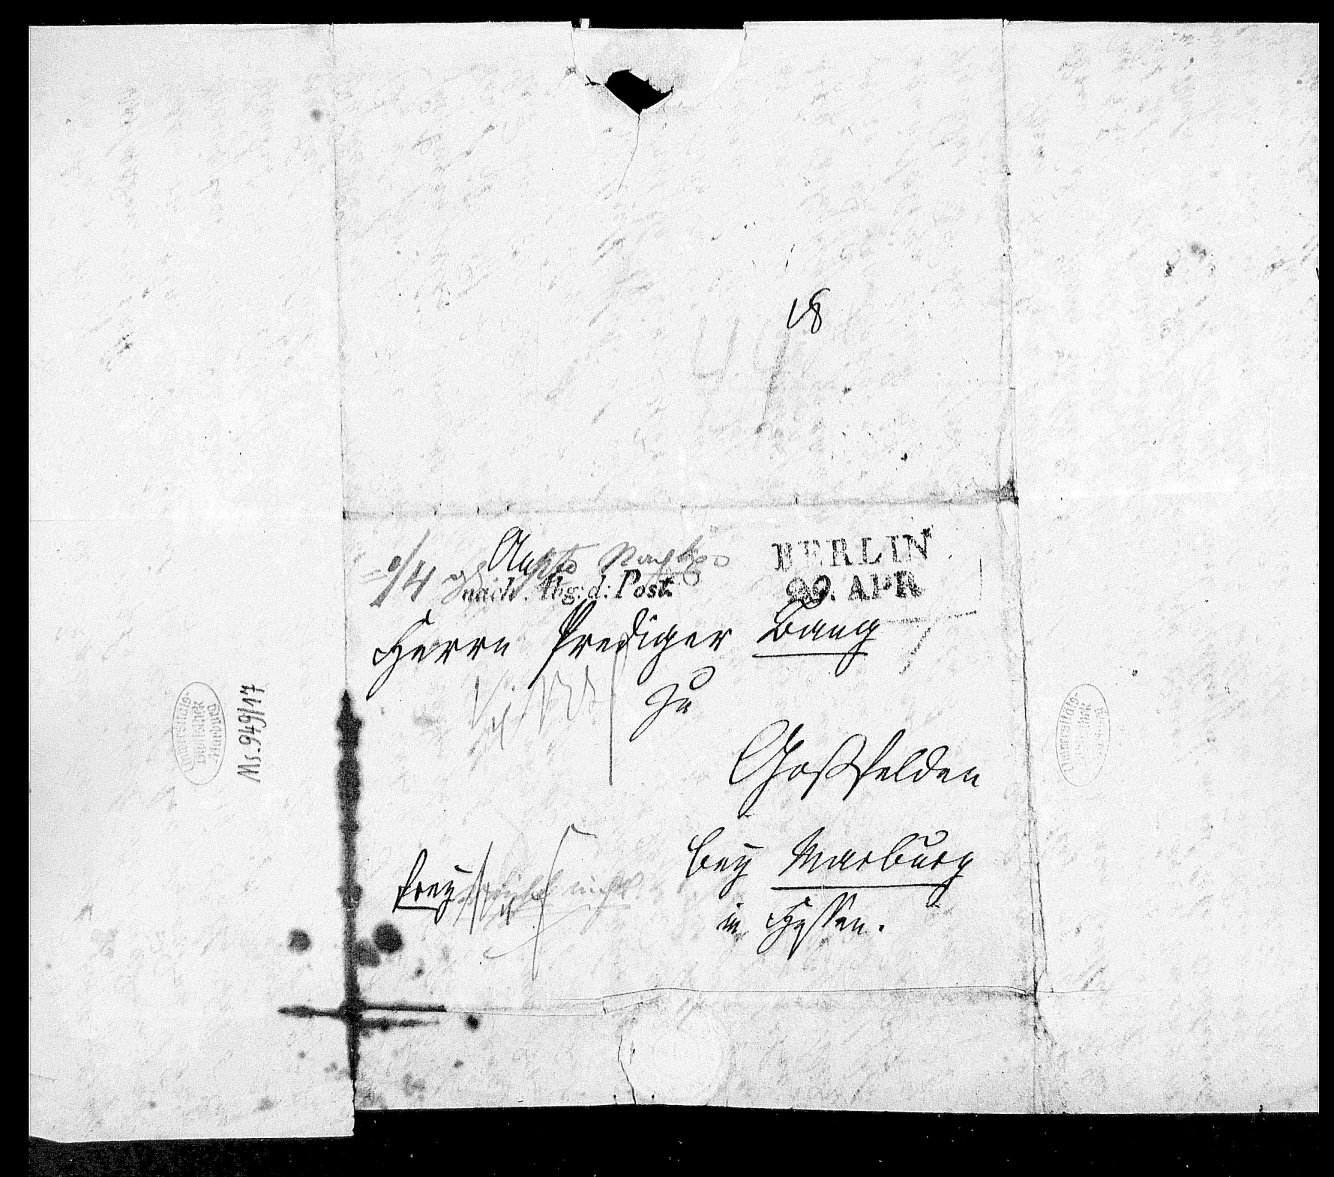 18
An
nach Abg: d: Post.
BERLIN
29. APR
Herrn Prediger Bang
zu
Goßfelden
bey Marburg
in Hessen.
frey
Ms. 949/17
Universitäts-
Bibliothek
Marburg
Universitäts-
Bibliothek
Marburg